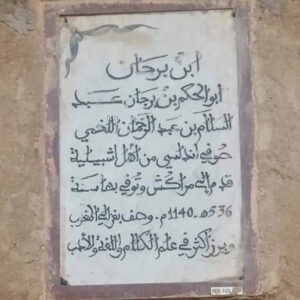 ابن برجان
ابو الحكم بن برجان، عبد
السلام بن عبد الرحمان اللخمي
صوفي اندلسي من اهل اشبيلية
قدم إلى مراكش وتوفي بها سنة
536هـ - 1140م. ودفن بمراكش
وبرز اكثر في علم الكلام واللغة والأدب